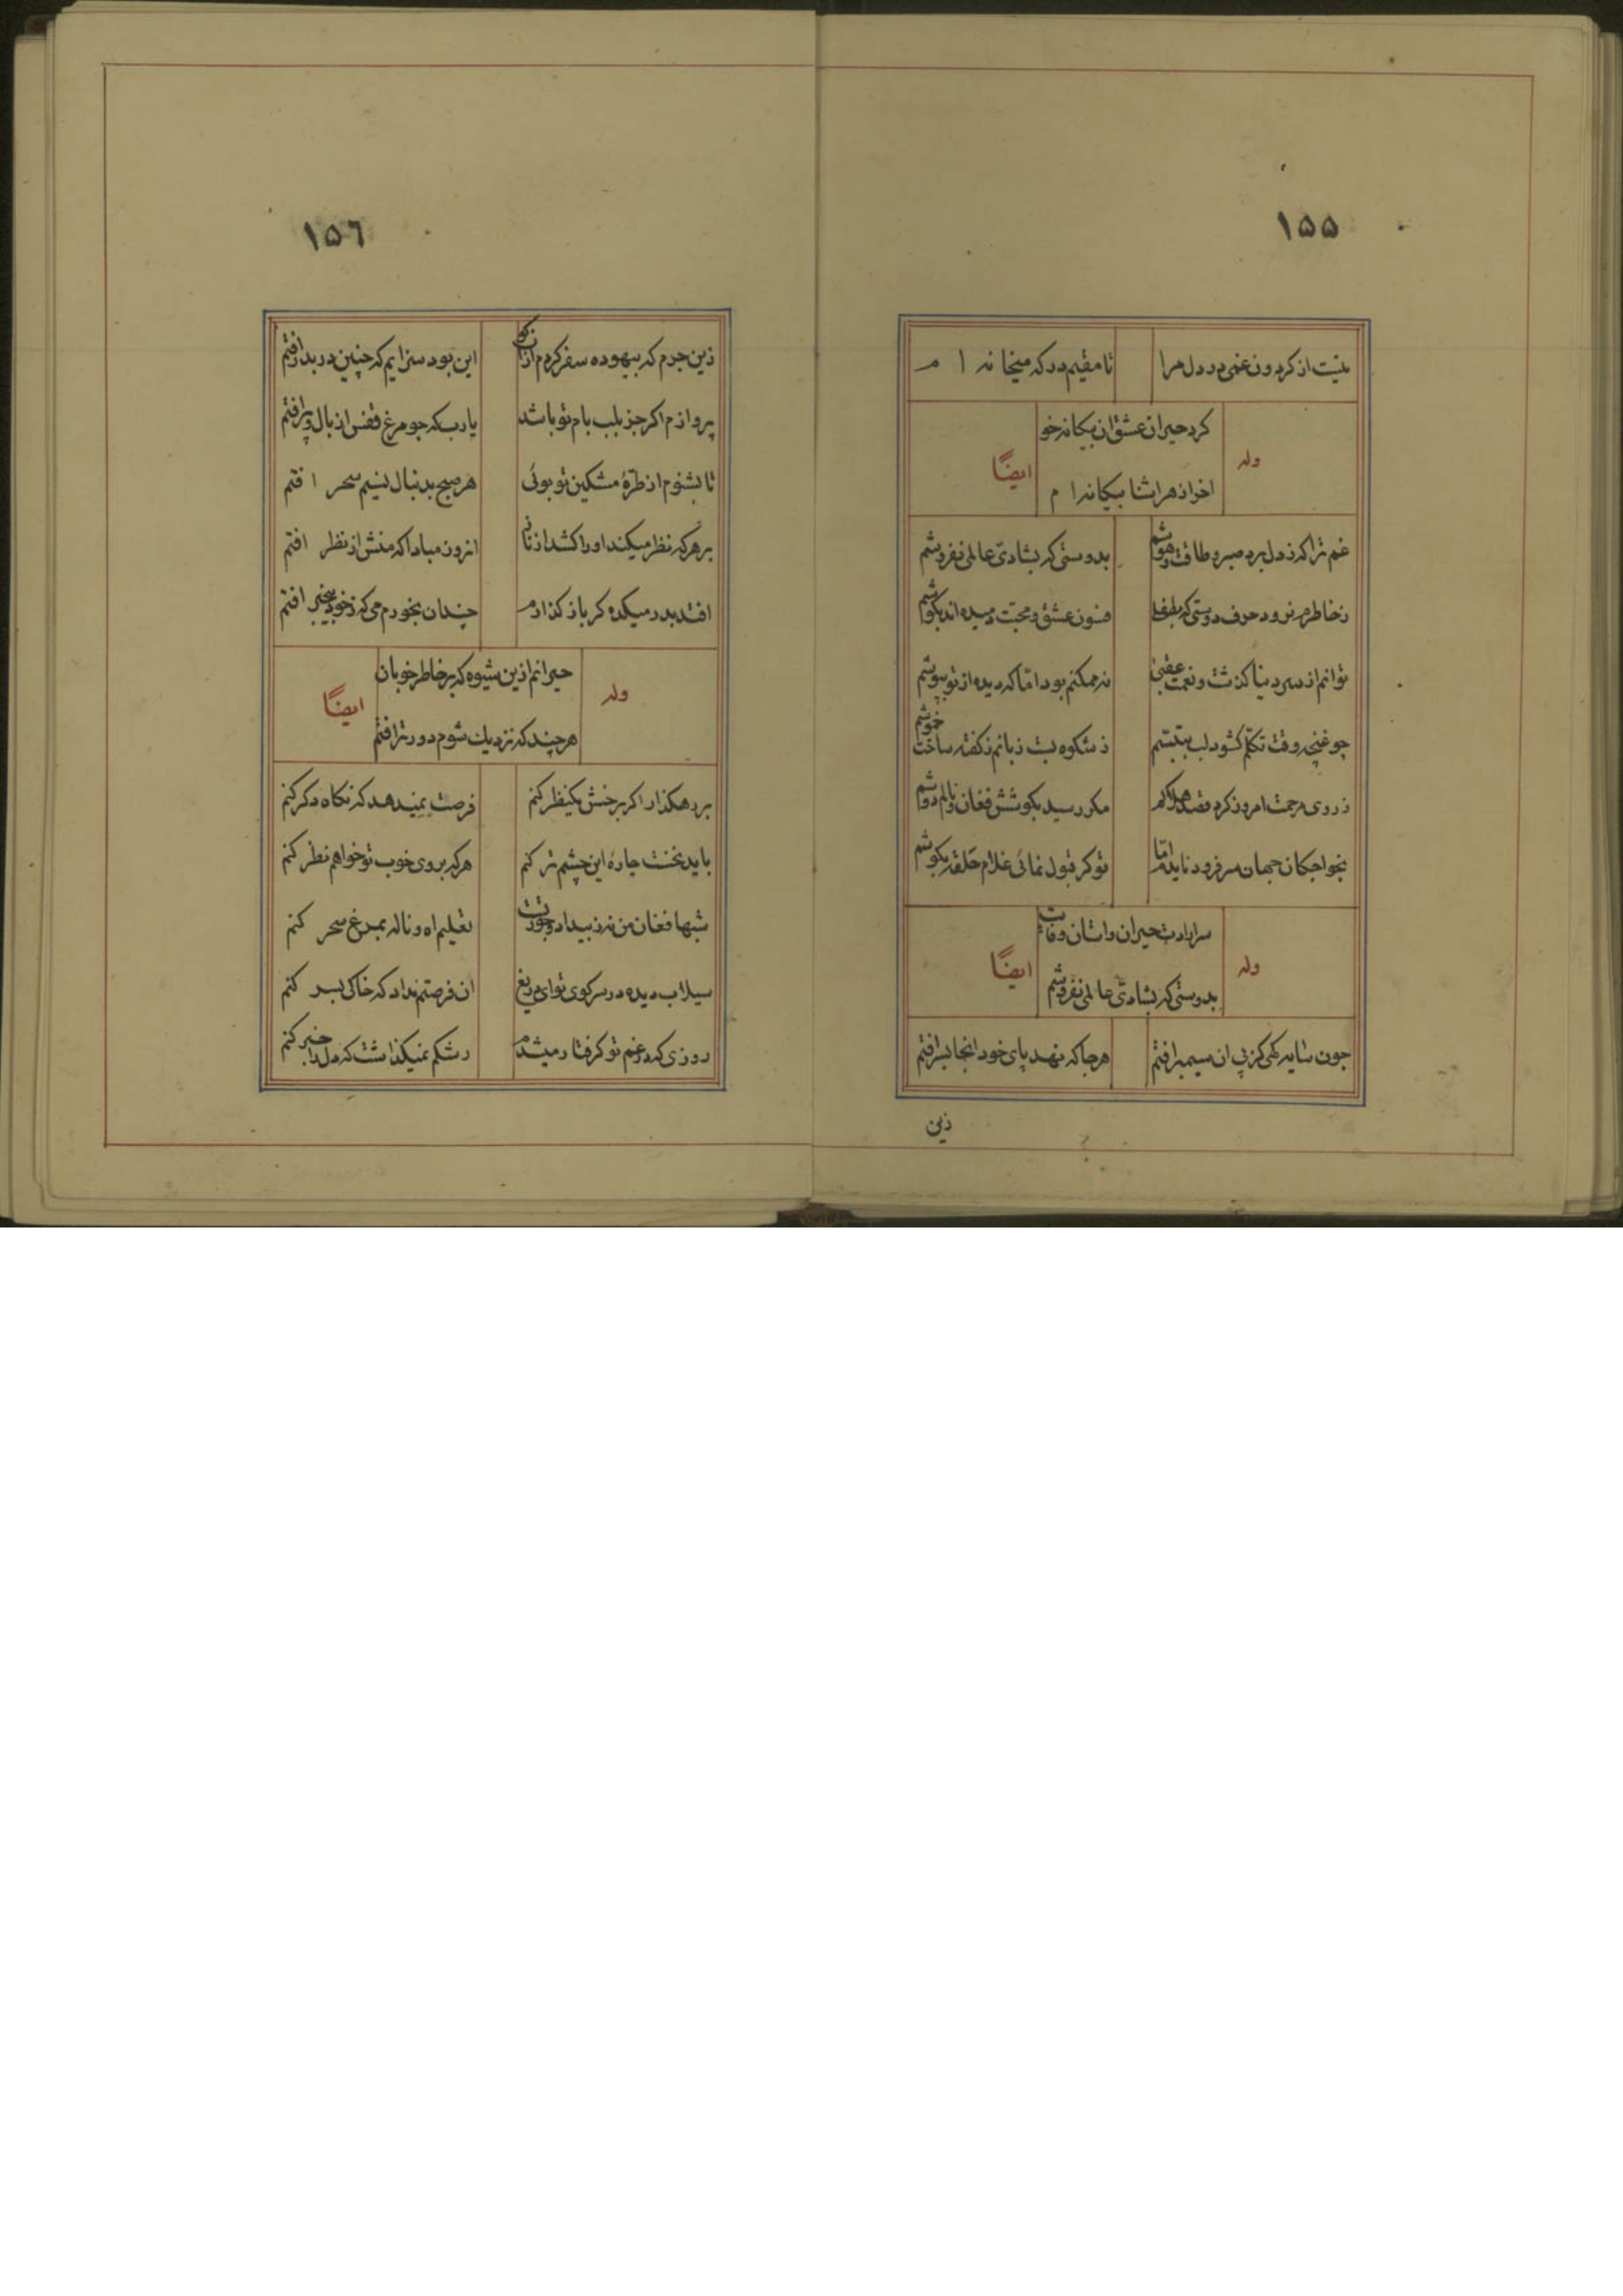 ۱۵۵
نیست از کردون غمی در دل مرا
تا مقیم درکه میخانه ا م
کرد حیران عشق ان بیکانه خو
وله
ایضاً
اخر از هر اشنا بیکانه ا م
غم ترا که ز دل برد صبر و طاقت و هوشم
بدوستی که بشادی عالمی نفروشم
ز خاطرم نرود حرف دوستی که بطفلی
فسون عشق و محبت دمیده اند بکوشم
توانم از سر دنیا کذشت و نعمت عقبی
نه ممکنم بود اما که دیده از تو بپوشم
چو غنچه وقت تکلم کشود لب بتبسم
ز شکوه بست زبانم نکفته ساخت خموشم
ز روی مرحمت امروز کرد قصد هلاکم
مکر رسید بکوشش فغان و ناله دوشم
بخواجکان جهان سر فرود نایدم اما
تو کر قبول نمائی غلام حلقه بکوشم
سر ارادت حیران و استان وفایت
وله
ایضاً
بدوستی که بشادی عالمی نفروشم
چون سایه کهی کز پی ان سیمبر افتم
هرجا که نهد پای خود انجا بسر افتم
زین
۱۵٦
زین جرم که بیهوده سفر کردم از ان کوی
این بود سزایم که چنین در بدر افتم
پروازم اکر جز بلب بام تو باشد
یا رب که چو مرغ قفس از بال و پر افتم
تا بشنوم از طرهٔ مشکین تو بوئی
هر صبح بدنبال نسیم سحر ا فتم
بر هر که نظر میکند او را کشد از ناز
افزون مبادا که منش از نظر افتم
افتد بدر میکده کر باز کذارم
چندان بخورم می که ز خود بیخبر افتم
حیرانم ازین شیوه که بر خاطر خوبان
وله
ایضاً
هر چند که نزدیک شوم دورتر افتم
بر رهکذار اکر برخش یکنظر کنم
فرصت نمیدهد که نکاه دکر کنم
باید نخست چارهٔ این چشم تر کنم
هر که بروی خوب تو خواهم نظر کنم
شبها فغان من نه ز بیداد و جور تست
تعلیم اه و ناله بمرغ سحر کنم
سیلاب دیده در سر کوی تو ای دریغ
ان فرصتم نداد که خاکی بسر کنم
روزی که در غم تو کرفتار میشدم
رشکم نمیکذاشت که دل را خبر کنم